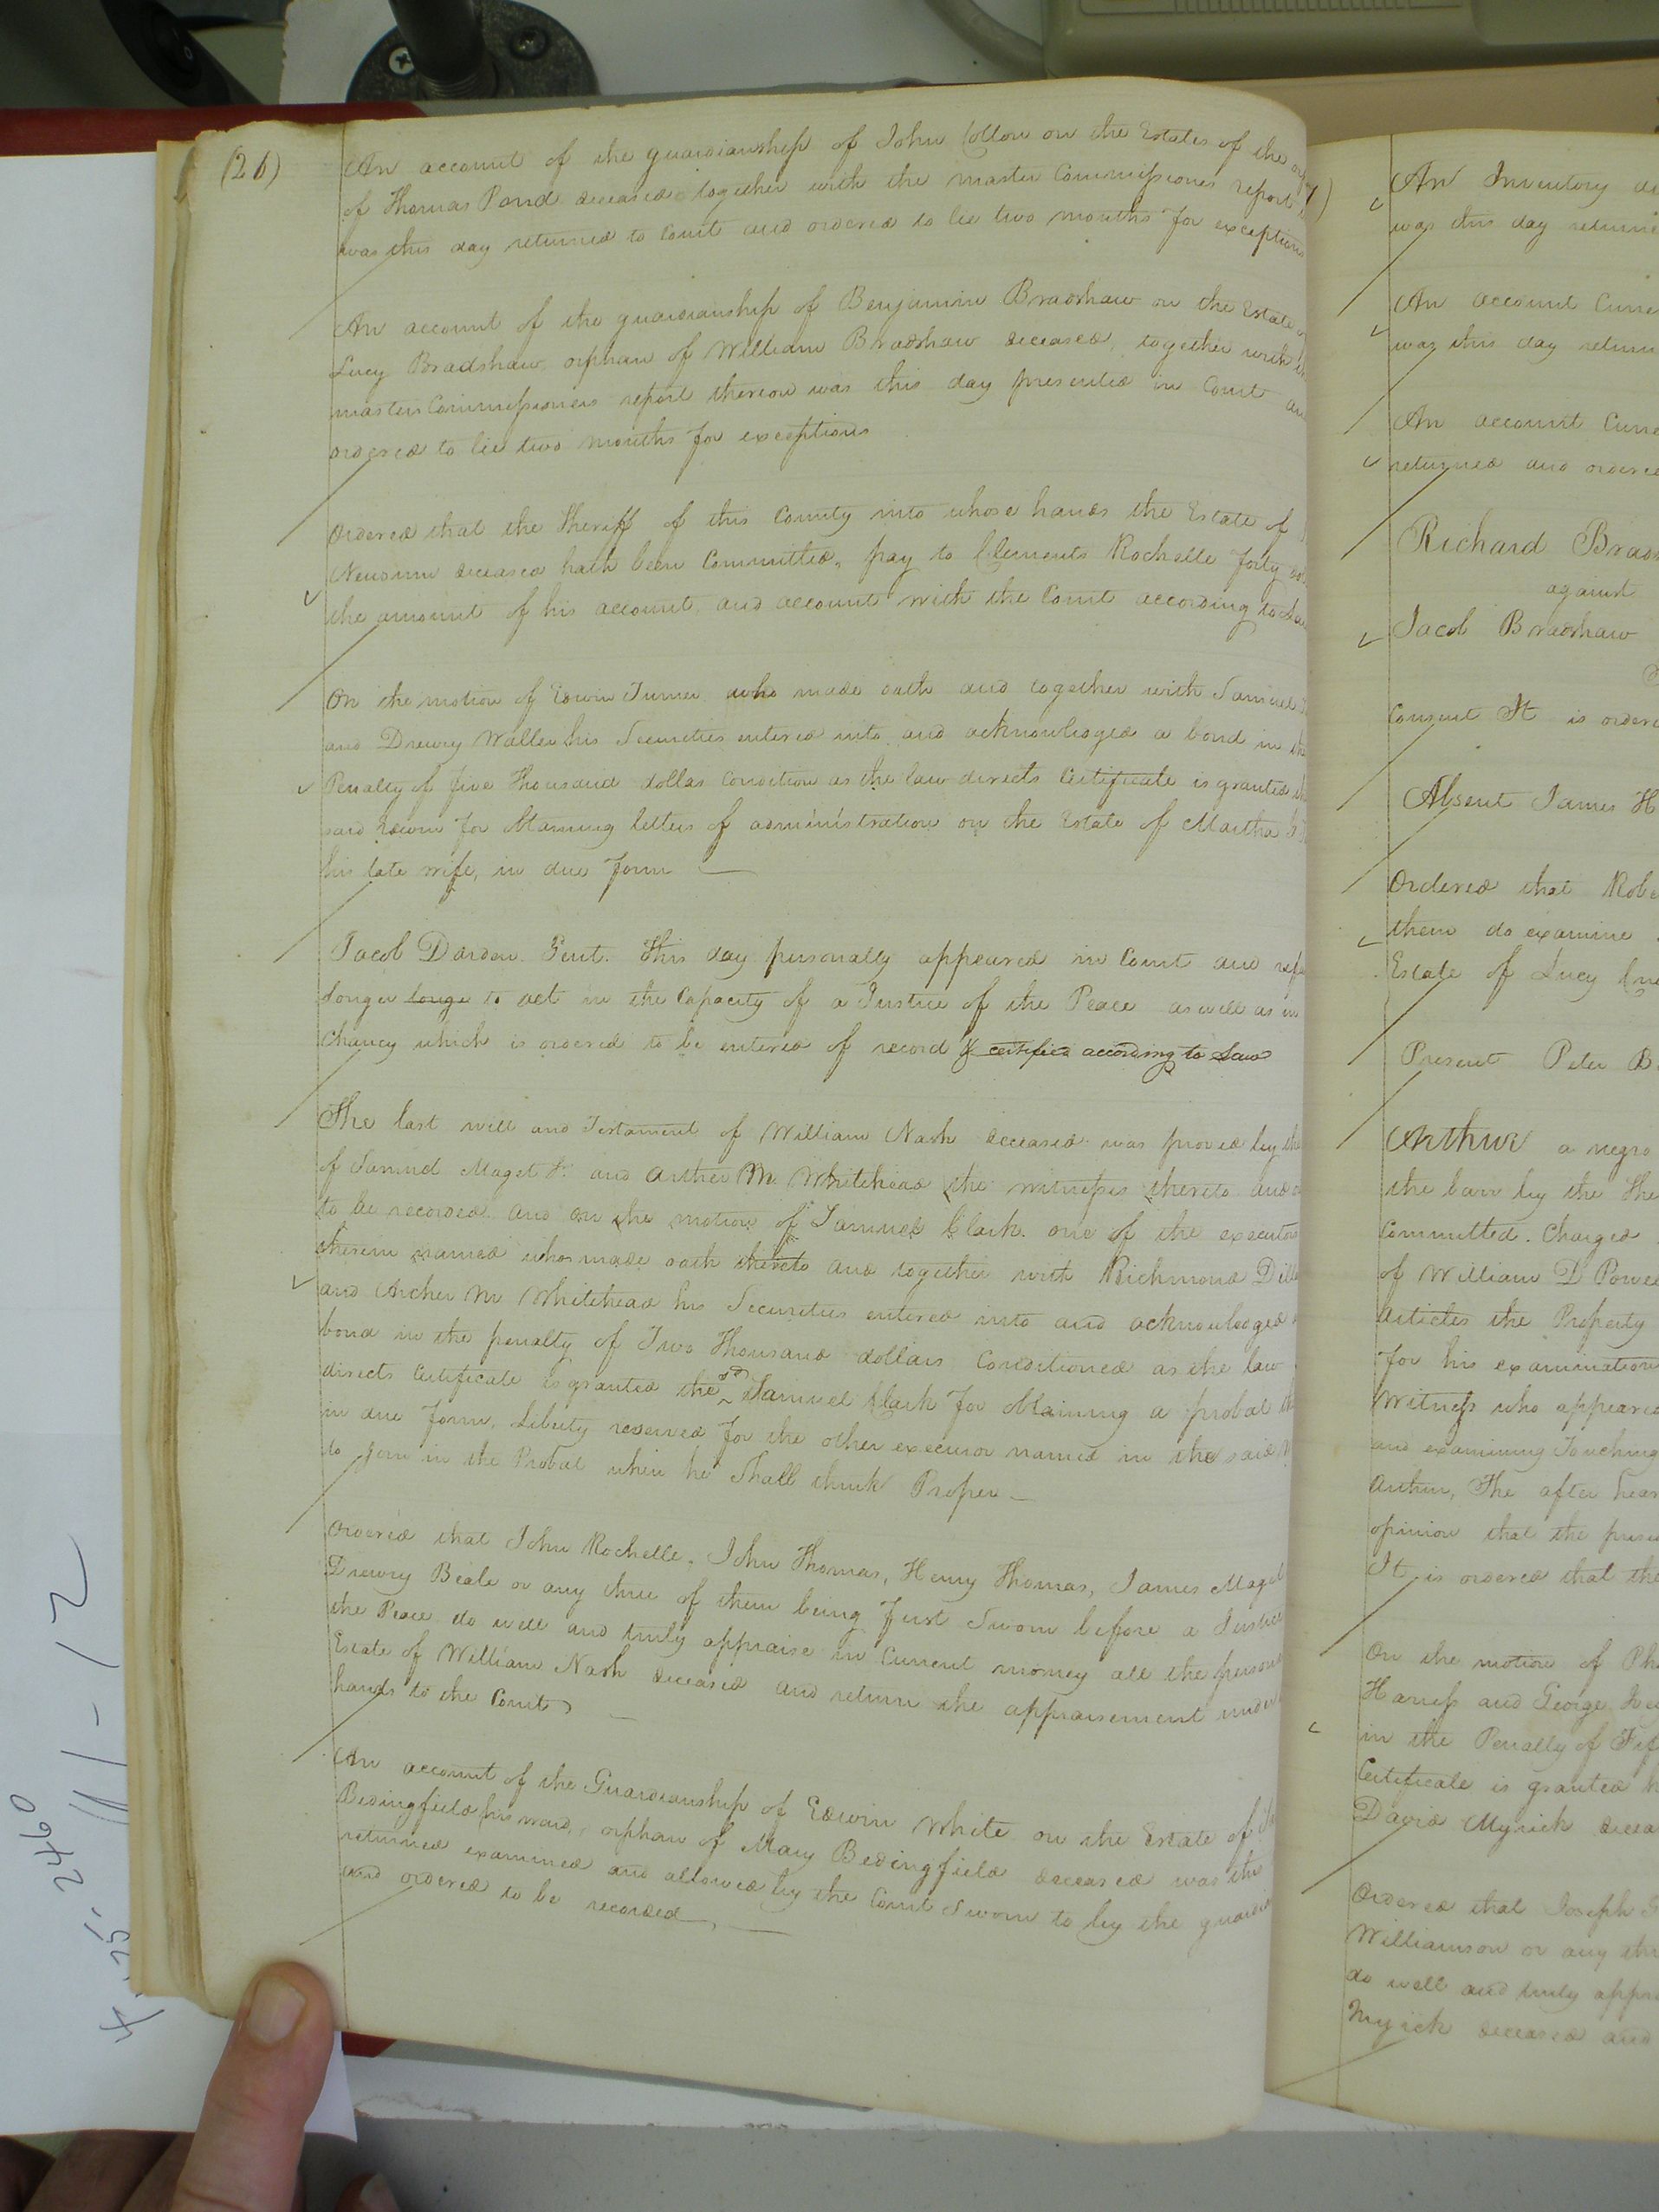 (26)
An account of the guardianship of John Cotton on the Estates of the
of Thomas Pond deceased together with the master Commissioners report
was this day returned to Court and ordered to lie two months for exceptions
An account of the guardianship of Benjamin Bradshaw on the Estate
Lucy Bradshaw orphan of William Bradshaw deceased, together with
masters Commissioners report thereon was this day presented in Court
ordered to lie two months for exceptions
Ordered that the Sheriff of this County into whose hands the Estate of
Newsum deceased hath been Committed, pay to Clements Rochelle forty
the amount of his account, and account with the Court according to
On the motion of Edwin Turner who made oath and together with Samuel
and Drewry Waller his Securities entered into and acknowledged a bond in
Penalty of five Thousand dollas Condition as the law directs Certificate is granted
said Edwin for Obtaining letters of administration on the Estate of Martha
his late wife, in due form
Jacob Darden Gent. This day personally appeared in Court and
longer longe to act in the Capacity of a Justice of the Peace as well as in
Chancy which is ordered to be entered of record & certified according to Law
The last will and Testament of William Nash deceased was proved by
of Samuel Maget Jr. and Archer M. Whitehead the witnesses thereto and
to be recorded. and on the motion of Samuel Clark. one of the executors
therein named who made oath thereto and together with Richmond
and Archer M Whitehead his Securities entered into and acknowledged
bond in the penalty of Two Thousand dollars Conditioned as the law
directs Certificate is granted the sd Samuel Clark for Obtaining a probat
in due form. Liberty reserved for the other executor named in the said
to join in the Probat when he Shall think Proper
Ordered that John Rochelle, John Thomas, Henry Thomas, James Maget
Drewry Beale or any three of them being first Sworn before a Justice
the Peace do well and truly appraise in Current money all the
Estate of William Nash deceased and return the appraisement under
hands to the Court
An account of the Guardianship of Edwin White on the Estate of
Bedingfield his ward, orphan of Mary Bedingfield deceased was
returned examined and allowed by the Court Sworn to by the
and ordered to be recorded
An Inventory
was this day
An account
was this day
An account
returned and
Richard
against
Jacob Bradshaw
Consent It is
Absent James H
Ordered that
them do examine
Estate of Lucy
Present Peter
Arthur a negro
the barr by the
Committed. Charged
of William D
articles the Property
for his examination
Witness who
and examining Touching
Arthur, The after
opinion that the
It is ordered that the
On the motion of
and George
in the Penalty of
Certificate is granted
David Myrick
Ordered that Joseph
Williamson or any
do well and truly
Myrick deceased and
11-12
2460